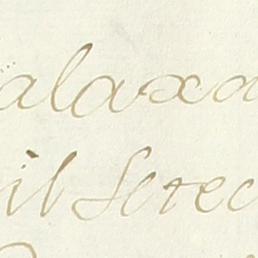 alaxa
il Setec